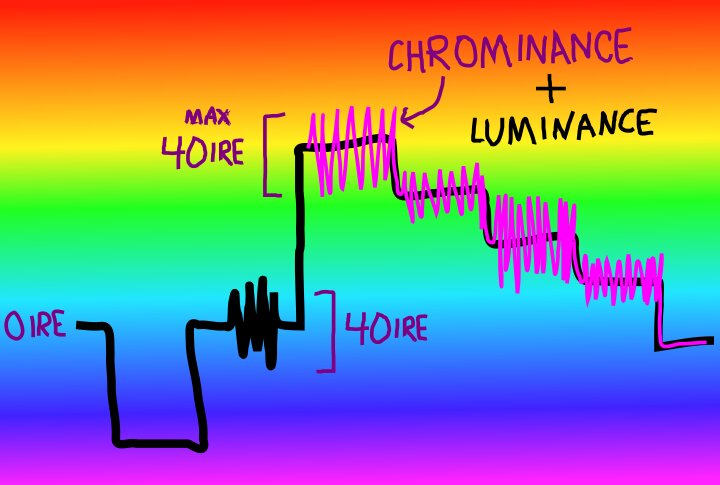 CHROMINANCE
+
LUMINANCE
MAX
40IRE
0IRE
40IRE